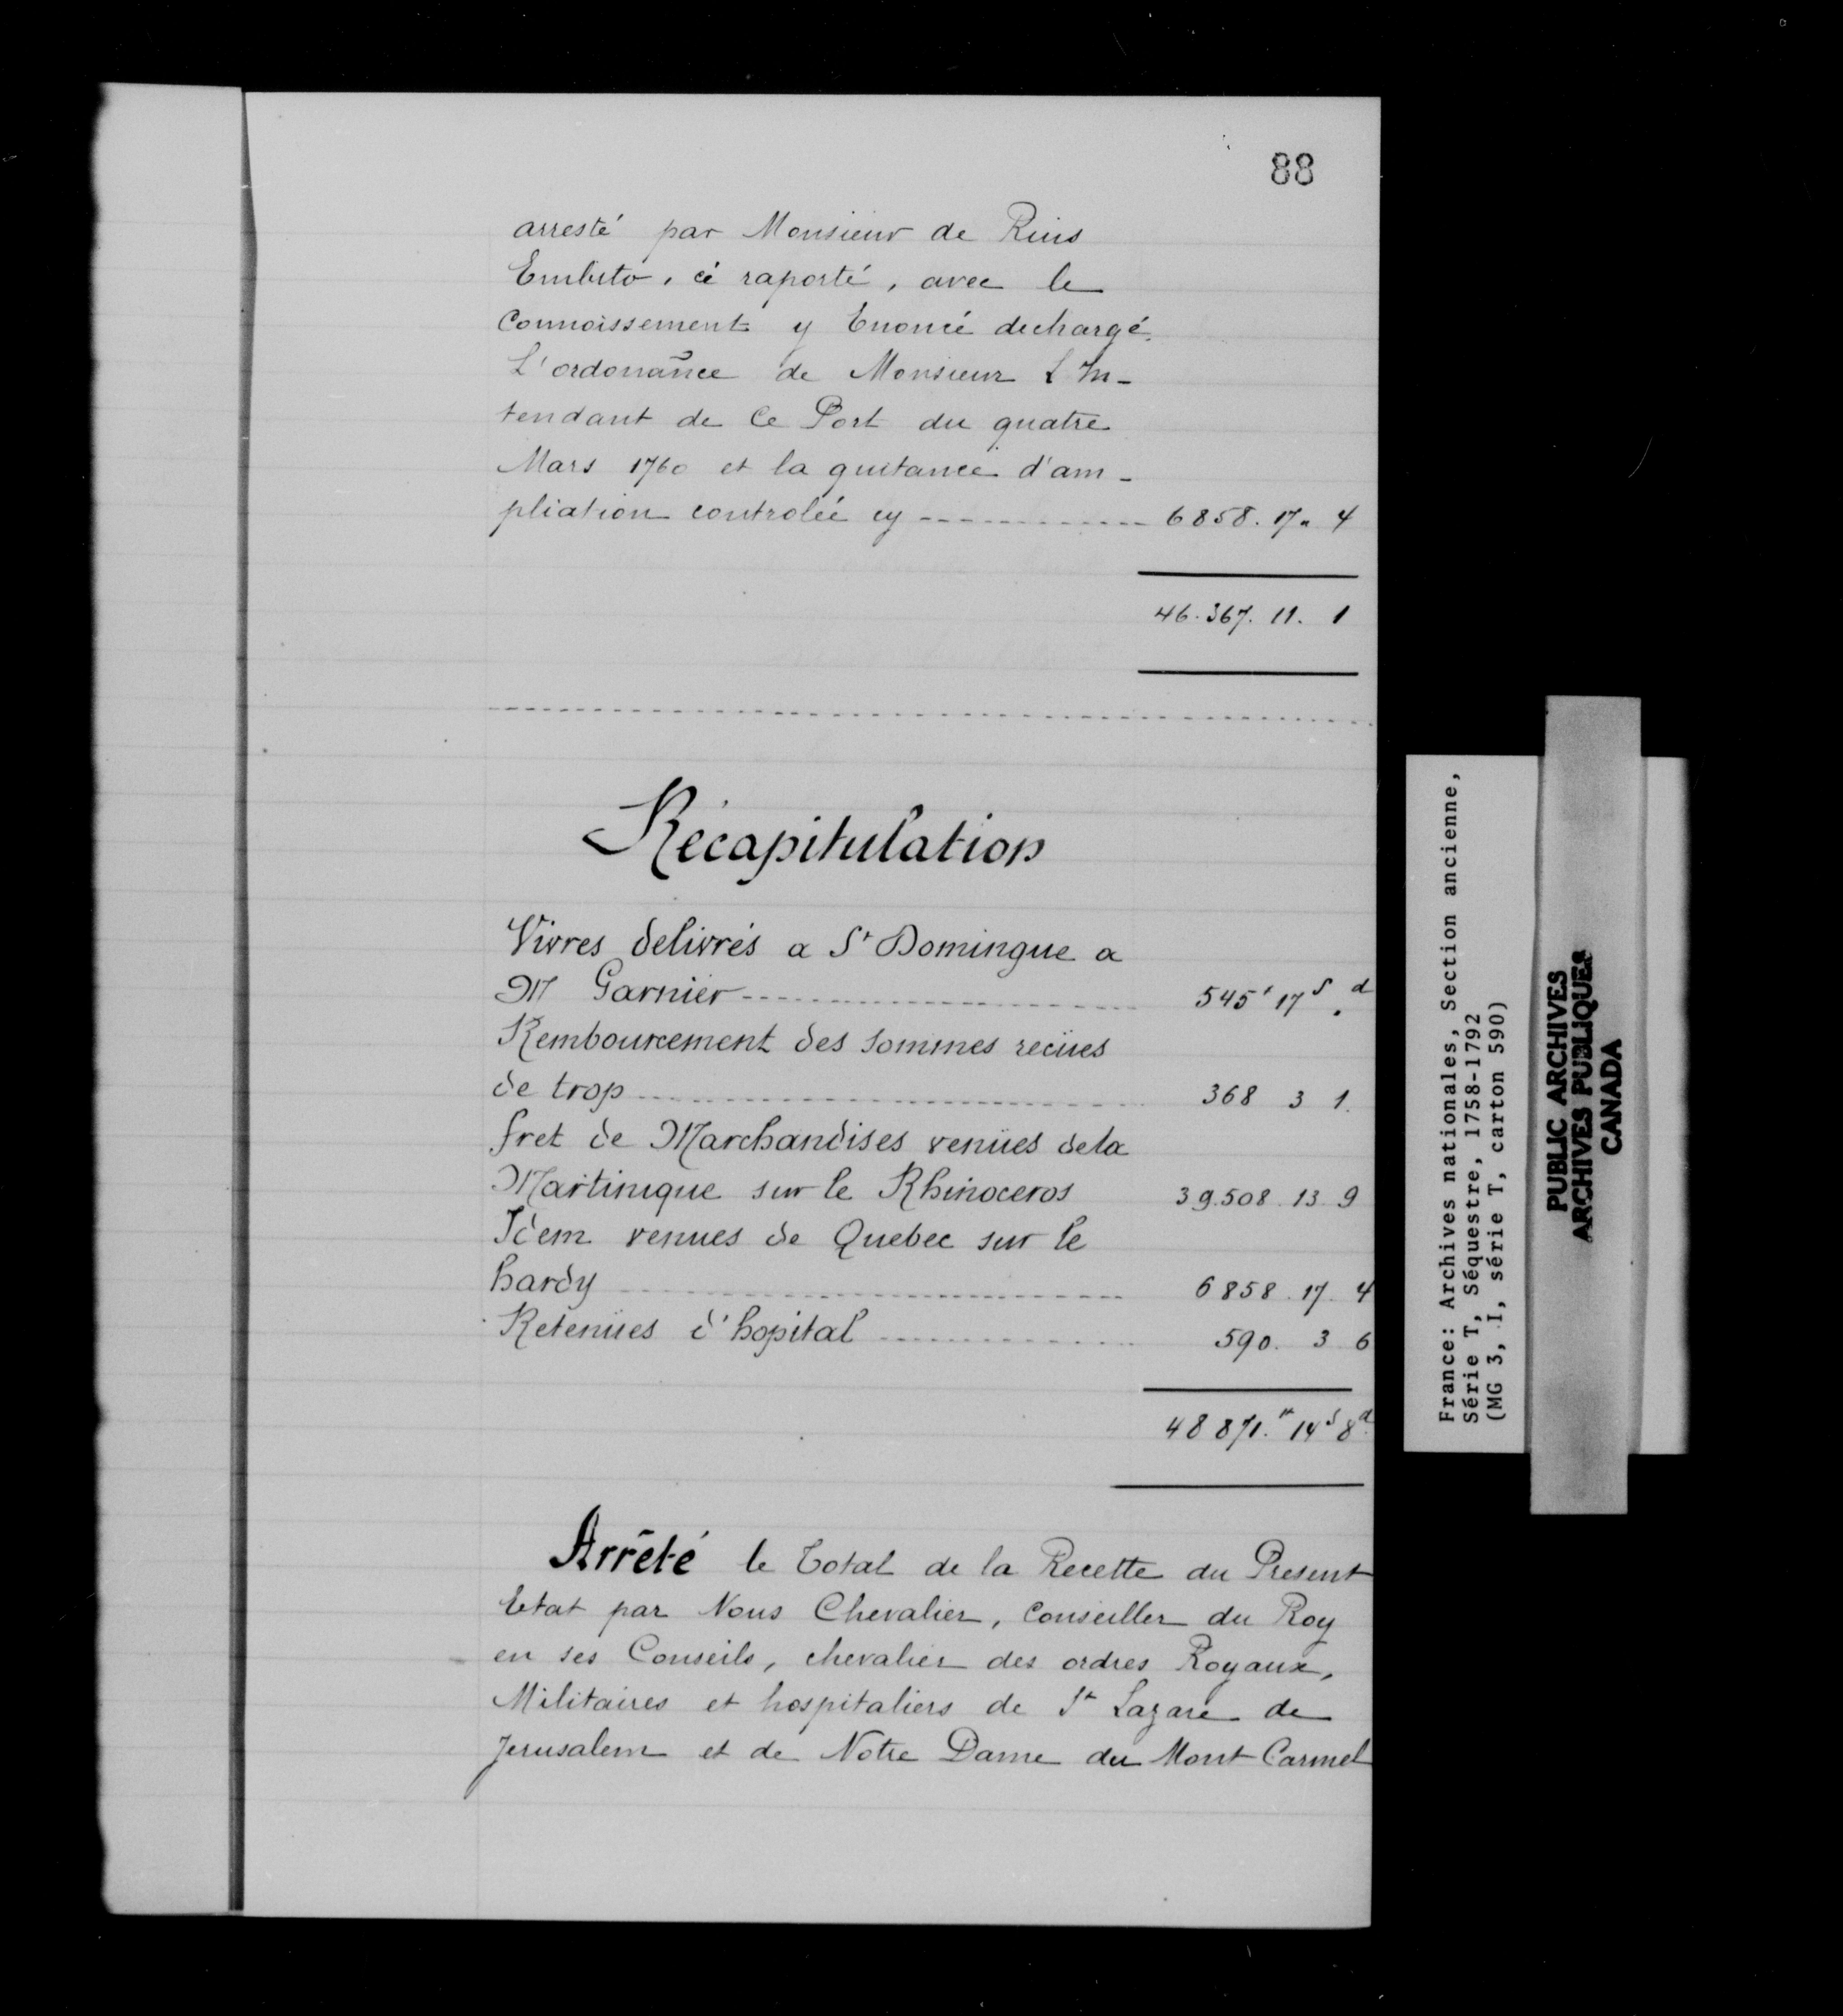 88
arresté par Monsieur de Rins
Embito, ci raporté, avec le
Connoissement y Enoncé dechargé.
L'ordonañce de Monsieur L'In-
tendant de Ce Port du quatre
Mars 1760 et la quitance d'am-
pliation controlée cy ------------ 6858. 17. 4
46.367. 11. 1
Récapitulation
Vivres delivrés a St Domingue a
M Garnier ------------ 545# 17s . d
Rembourcement des sommes reciies
de trop ------------ 368 3 1.
fret de Marchandises venües dela
Martinique sur le Rhinoceros 39.508. 13. 9
Idem venues de Quebec sur le
hardy ------------ 6858. 17. 4
Retenües d'hopital ------------ 590. 3 6
48871.# 14s 8d.
Arrêté le Total de la Recette du Present
Etat par Nous Chevalier, Conseiller du Roy
en ses Conseils, chevalier des ordres Royaux,
Militaires et hospitaliers de St Lazare de
Jerusalem et de Notre Dame du Mont Carmel
France: Archives nationales, Section ancienne,
Série T, Séquestre, 1758-1792
(MG 3, I, série T, carton 590)
PUBLIC ARCHIVES
ARCHIVES PUBLIQUES
CANADA